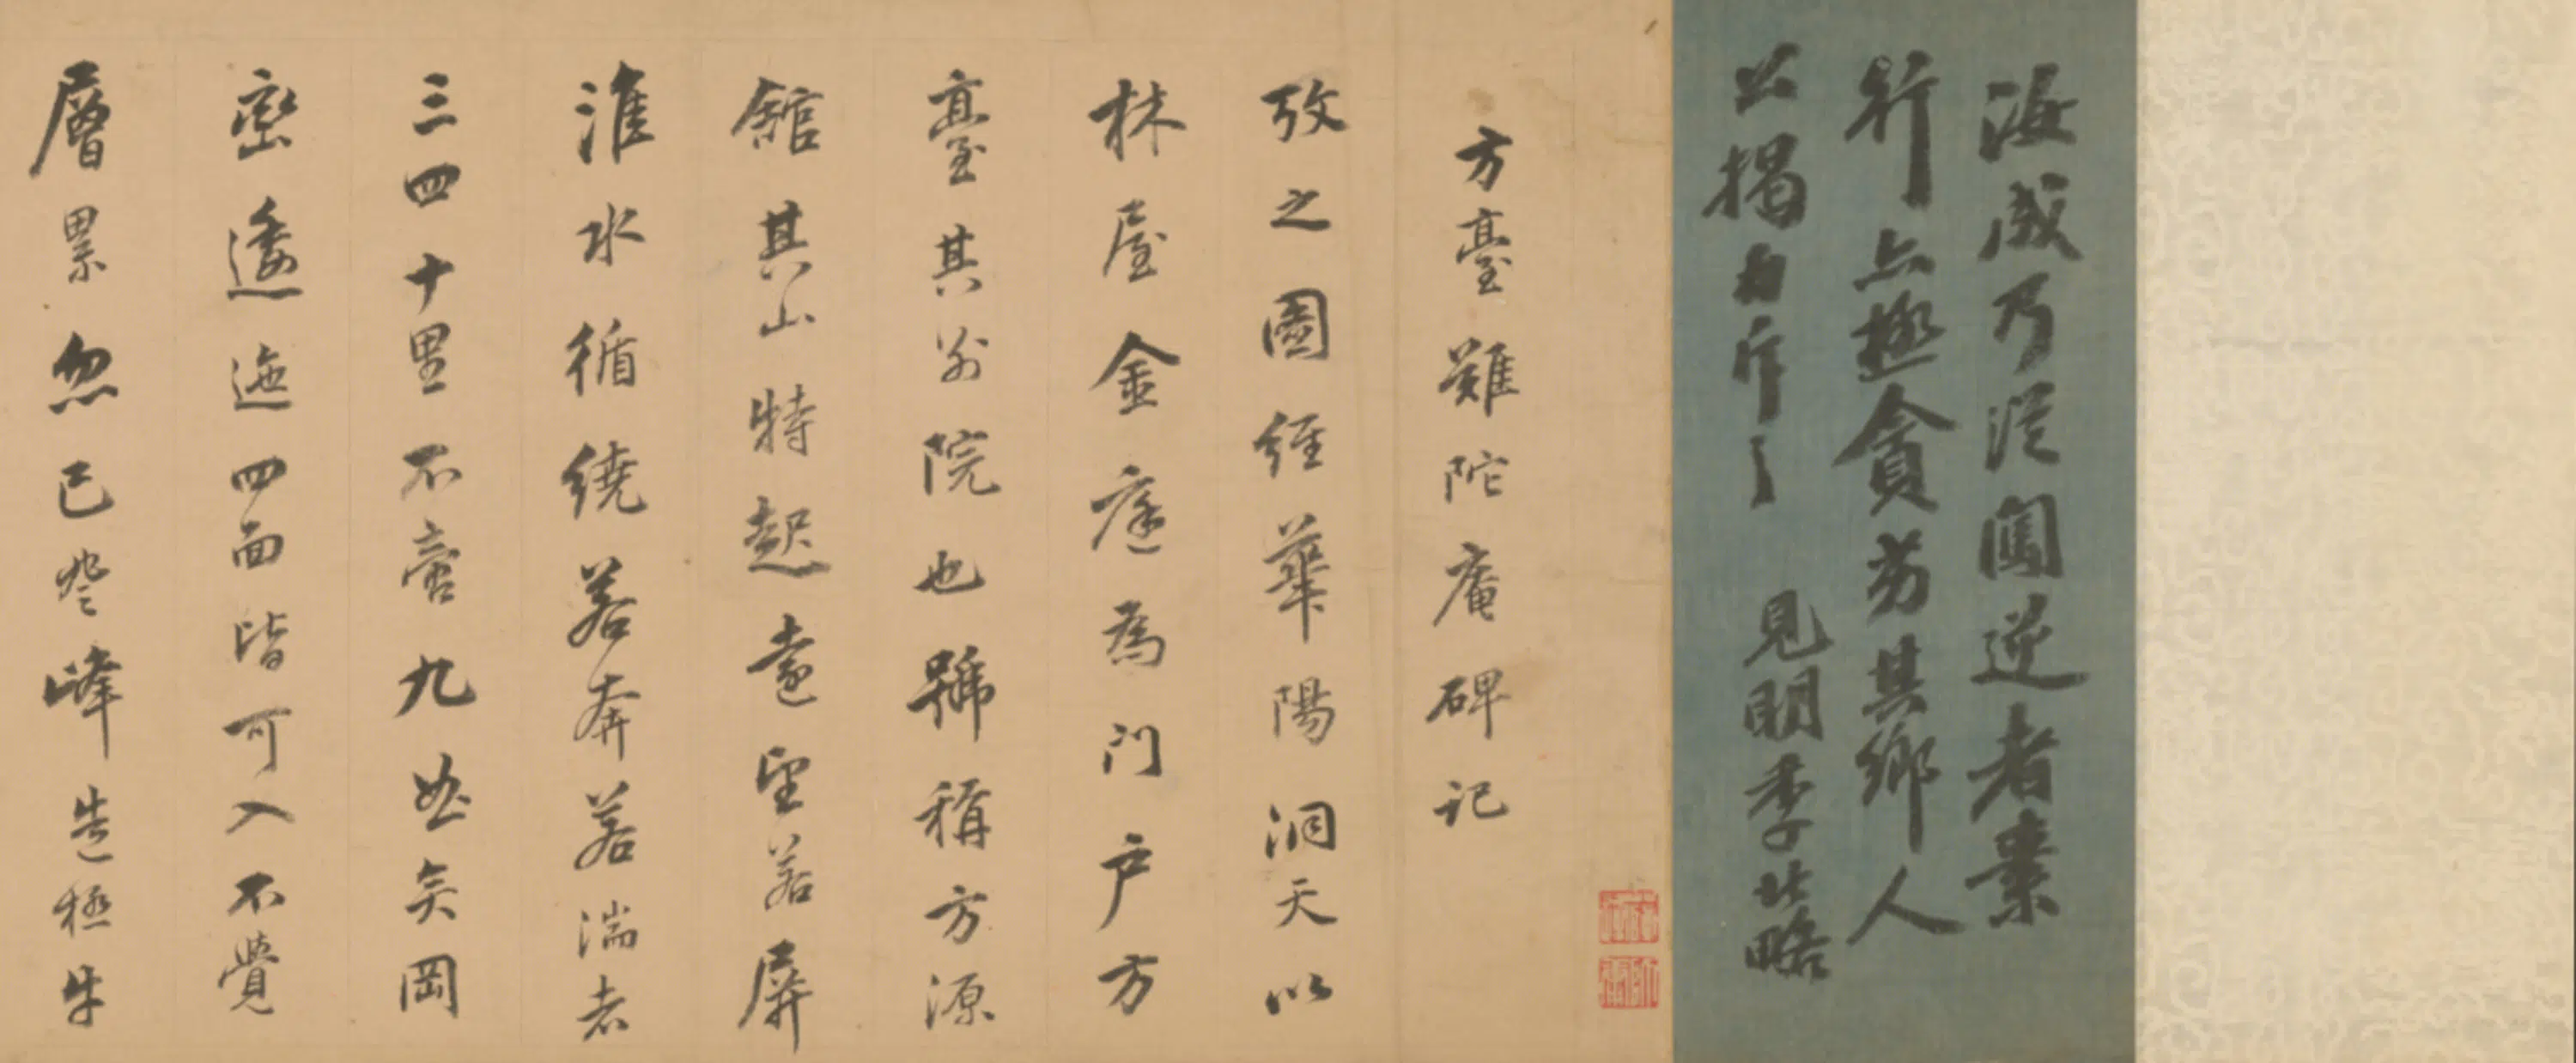 海成乃從闖逆者素
行亦極貪劣其鄉人
公揭力斥之 見明季北略
方臺難陀庵碑記
攷之圖經華陽洞天以
林屋金庭為門户方
臺其別院也號稱方源
舘其山特起遠望若屏
淮水循繞若奔若湍者
三四十里不啻九曲矣岡
巒逶迤四面皆可入不覺
層累忽已登峰造極牛